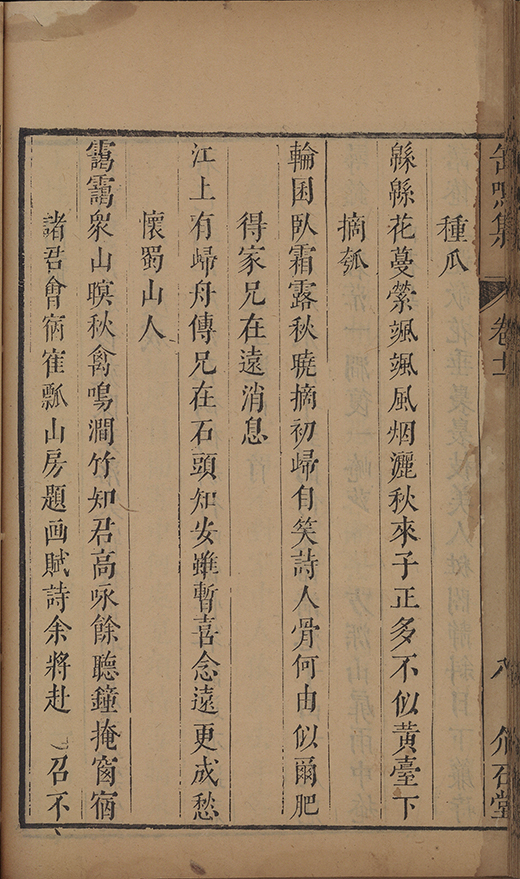 缶鳴集
卷十一
八
介石堂
種瓜
緜緜花蔓縈颯颯風烟灑秋來子正多不似黃臺下
摘瓠
輪囷臥霜露秋曉摘初歸自笑詩人骨何由似爾肥
得家兄在遠消息
江上有歸舟傳兄在石頭知安雖暫喜念遠更成愁
懷蜀山人
靄靄衆山暝秋禽鳴澗竹知君高咏餘聽鐘掩窗宿
諸君會宿崔瓢山房題画賦詩余將赴 召不